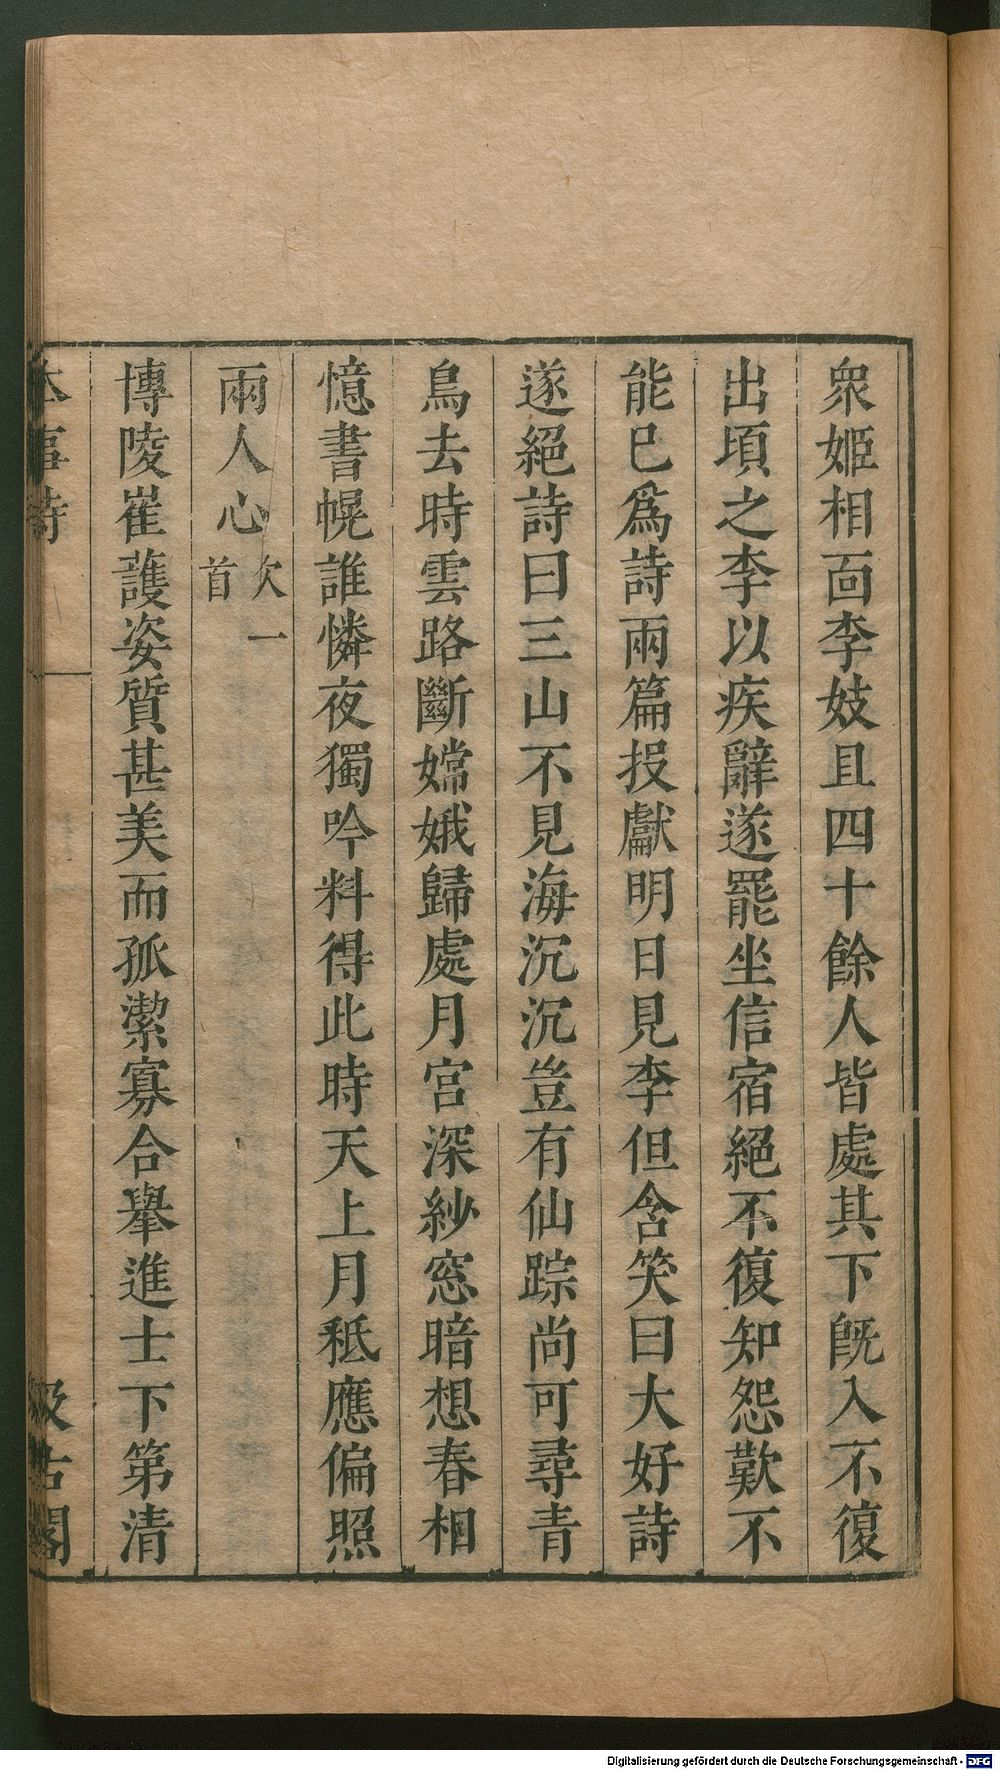 衆姬相面李妓且四十餘人皆處其下旣入不復
出頃之李以疾辭遂罷坐信宿絕不復知怨歎不
能已爲詩兩篇投獻明日見李但含笑曰大好詩
遂絕詩曰三山不見海沉沉豈有仙踪尚可尋青
鳥去時雲路斷嫦娥歸處月宮深紗窓暗想春相
憶書幌誰憐夜獨吟料得此時天上月秪應偏照
兩人心欠一首
博陵崔護姿質甚美而孤潔寡合舉進士下第清
本事詩
汲古閣
Digitalisierung gefördert durch die Deutsche Forschungsgemeinschaft - DFG